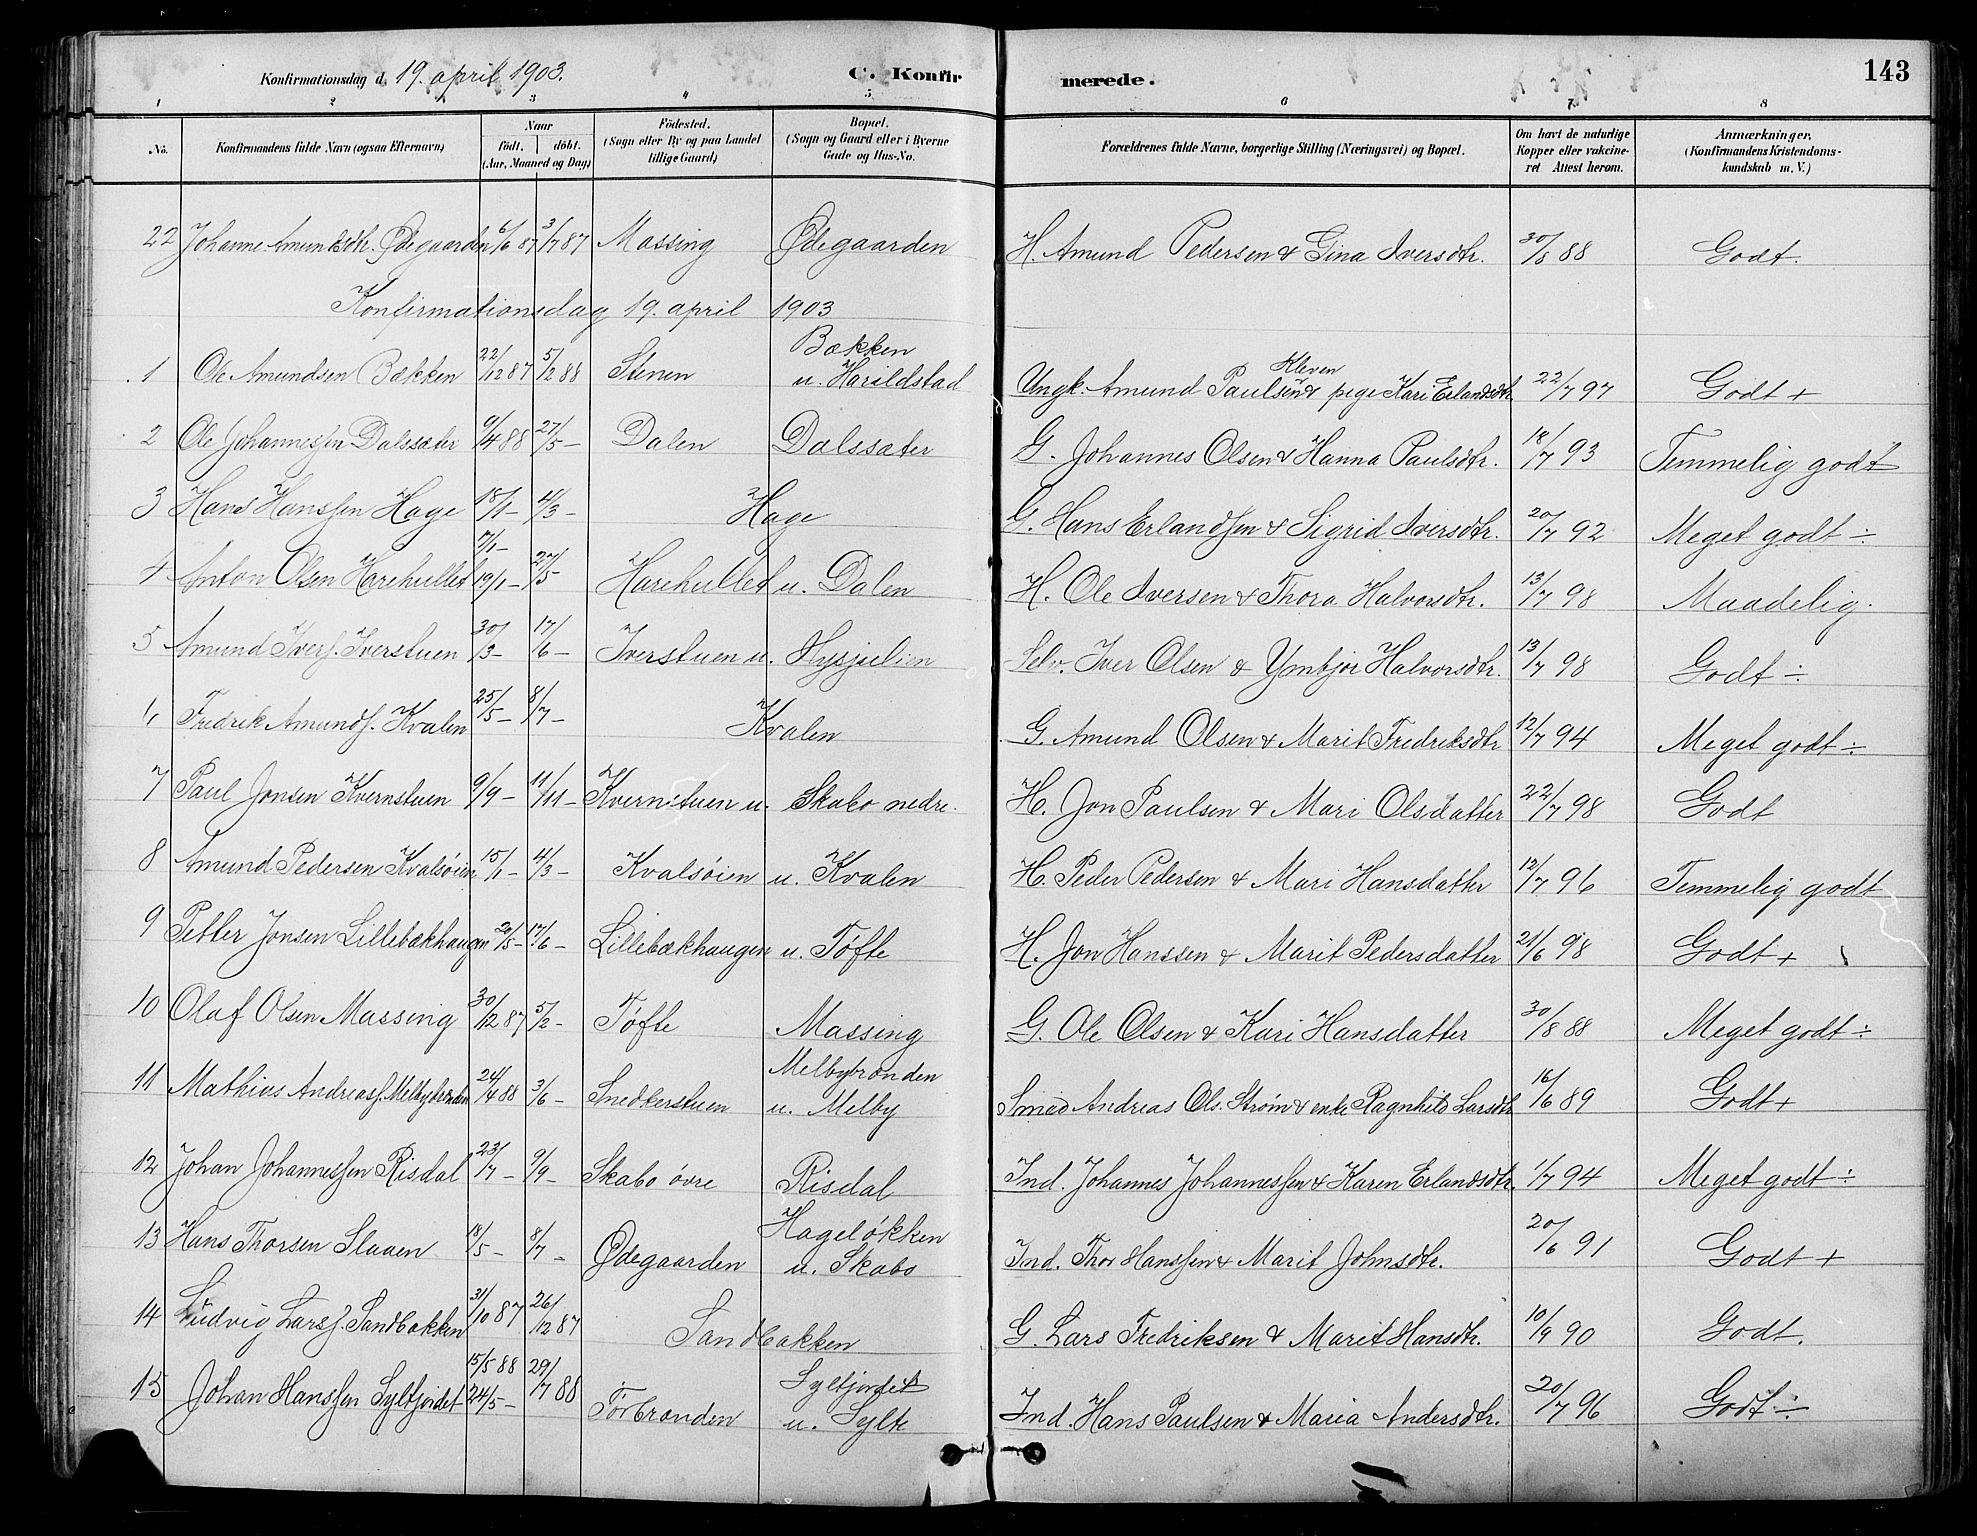 Konfirmationsdag d. 19. april 1903. C. Konfirmerede. 143
1 2 3 4 5 6 7 8
No. Konfirmandens fulde Navn (ogsaa Efternavn) Naar født. døbt. (Aar, Maaned og Dag) Fødested. (Sogn eller By og paa Landet tillige Gaard) Bopæl. (Sogn og Gaard eller i Byerne Gade og Hus-No. Forældrenes fulde Navne, borgerlige Stilling (Næringsvei) og Bopæl. Om havt de naturlige Kopper eller vakcineret Attest herom. Anmærkninger, (Konfirmandens Kristendomskundskab m. V.)
22 Johanne Amundsdtr. Ødegaarden 6/6 87 3/7 87 Massing Ødegaarden H. Amund Pedersen & Gina Iversdtr. 30/8 88 Godt.
Konfirmationsdag 19. april 1903
1 Ole Amundsen Bækken 22/12 87 5/2 88 Stenen Bækken u. Harildstad Ungk. Amund Paulsen Kleven & pige Kari Erlandsdtr 22/7 97 Godt +
2 Ole Johannessen Dalssæter 9/4 88 27/5 – Dalen Dalssæter G. Johannes Olsen & Hanna Paulsdtr. 18/7 93 Temmelig godt
3 Hans Hanssen Hage 18/1 – 4/3 – Hage G. Hans Erlandssen & Sigrid Iversdtr. 20/7 92 Meget godt ÷
4 Anton Olsen Harehullet 7/1 – 19/1 – 27/5 Harehullet u. Dalen H. Ole Iversen & Thora Halvorsdtr. 13/7 98 Maadelig.
5 Amund Ivers. Iverstuen 30/3 – 17/6 – Iverstuen u. Hysjulien Selv. Iver Olsen & Ymbjør Halvorsdtr. 13/7 98 Godt ÷
6 Fredrik Amunds. Kvalen 25/5 – 8/7 – Kvalen G. Amund Olsen & Marit Fredriksdtr 12/7 94 Meget godt ÷
7 Paul Jonsen Kvernstuen 9/9 – 11/11 – Kvernstuen u. Skabo nedre. H. Jon Paulsen & Mari Olsdatter 22/7 98 Godt
8 Amund Pedersen Kvalsøien 15/1 – 4/3 – Kvalsøien u. Kvalen H. Peder Pedersen & Mari Hansdatter 12/7 96 Temmelig godt
9 Petter Jonsen Lillebækhaugen 2/5 – 17/6 – Lillebækhaugen u. Tøfte H. Jon Hanssen & Marit Pedersdatter 21/6 98 Godt +
10 Olaf Olsen Massing 30/12 87 5/2 – Tøfte Massing G. Ole Olsen & Kari Hansdatter 30/8 88 Meget godt ÷
11 Mathias Andreas. Melbybrænden 24/4 88 3/6 – Snedkerstuen Melbybrænden u. Melby Smed Andreas Ols. Strøm & enke Ragnhild Larsdtr 16/6 89 Godt +
12 Johan Johannessen Risdal 23/7 – 9/9 – Skabo øvre Risdal Ind. Johannes Johannessen & Karen Erlandsdtr. 1/7 94 Meget godt ÷
13 Hans Thorsen Slaaen 18/5 – 8/7 – Ødegaarden Hageløkken u. Skabo Ind. Thor Hanssen & Marit Johnsdtr. 20/6 91 Godt +
14 Ludvig Larss. Sandbakken 31/10 87 26/12 87 Sandbakken G. Lars Fredriksen & Marit Hansdtr. 10/9 90 Godt.
15 Johan Hanssen Syltfjordet 15/5 88 24/5 – 29/7 88 Torbrønden Syltjordet u. Sylte Ind. Hans Paulsen & Maria Andersdtr. 20/7 96 Godt ÷